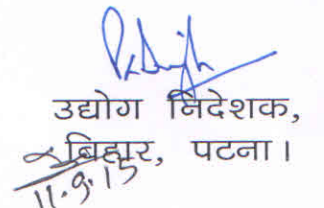 उद्योग निदेशक,
बिहार, पटना।
11.9.15